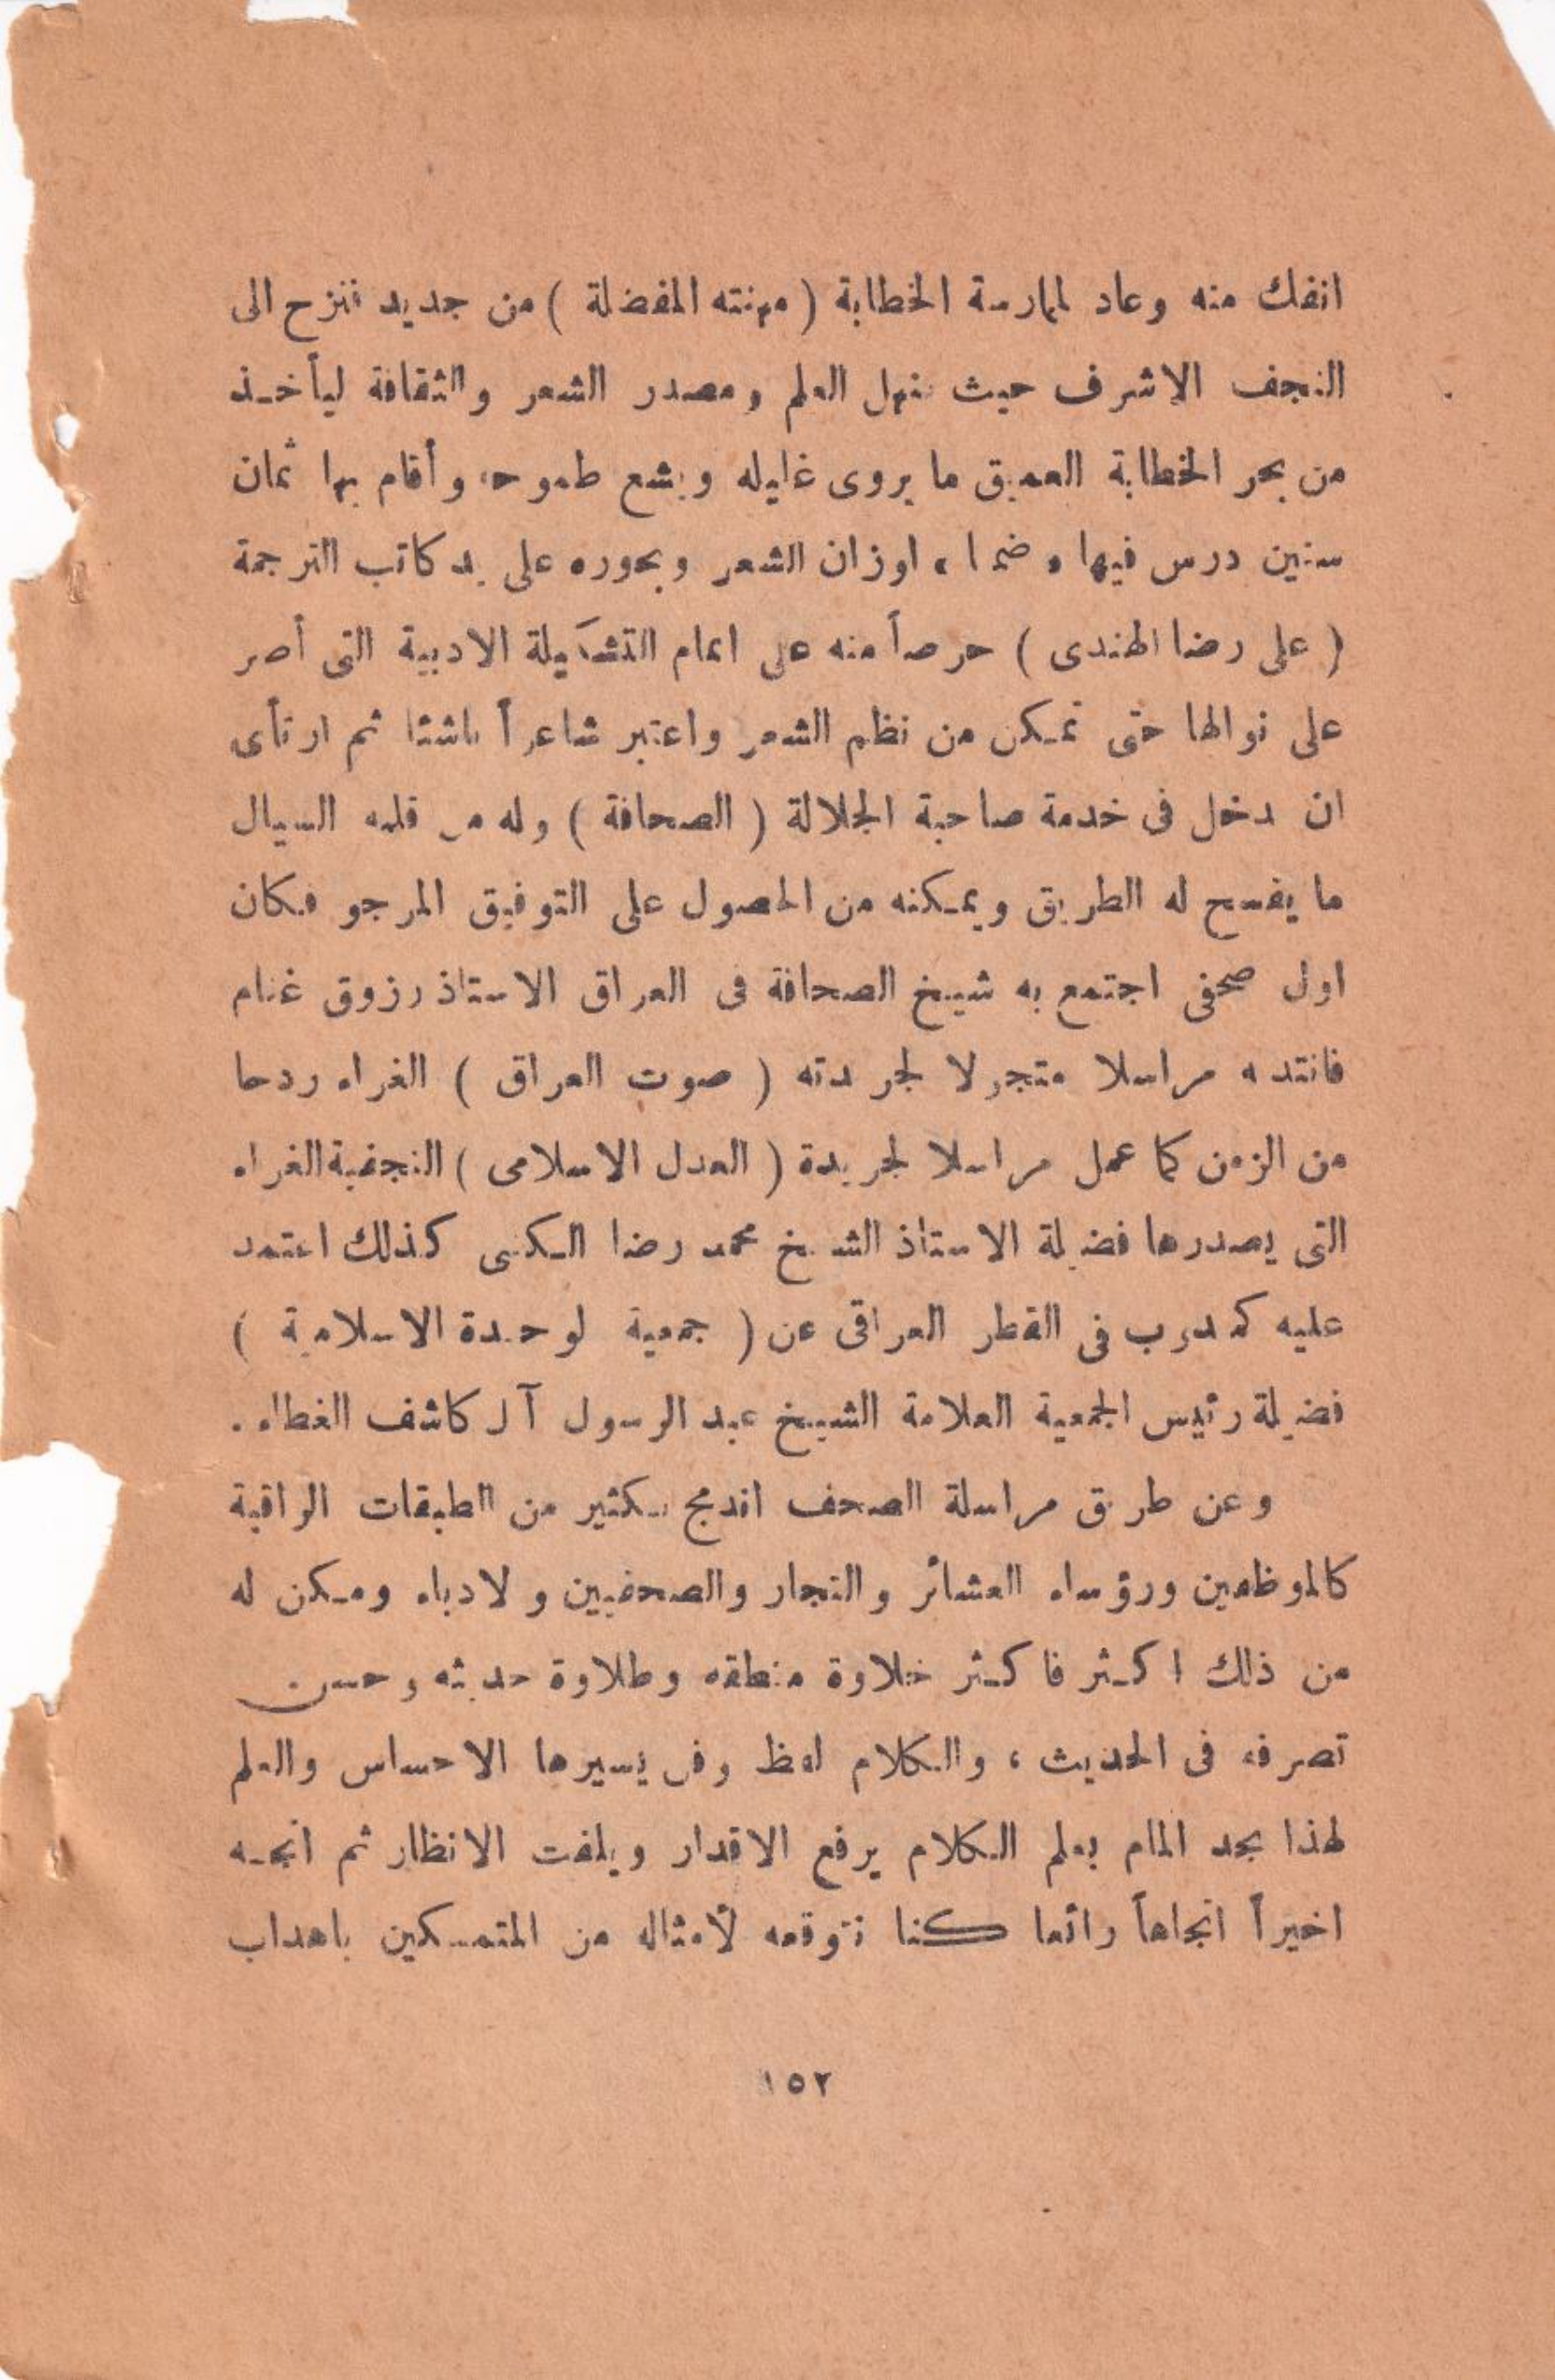 انفك منه وعاد لممارسة الخطابة ( مهنته المفضلة ) من جديد فنزح الى
النجف الاشرف حيث منهل العلم ومصدر الشعر والثقافة ليأخـذ
من بحر الخطابة العميق ما يروى غليله ويشبع طموحه وأقام بها ثمان
سنين درس فيها اوزان الشعر وبحوره على يد كاتب الترجمة
( على رضا الهندى ) حرصاً منه على اتمام التشكيلة الادبية التى أصر
على نوالها حتى تمـكن من نظم الشعر واعتبر شاعراً ناشئا ثم ارتأى
ان دخل فى خدمة صاحبة الجلالة ( الصحافة ) وله من قلمه السيال
ما يفسح له الطريق ويمـكنه من الحصول على التوفيق المرجو فكان
اول صحفى اجتمع به شيخ الصحافة فى العراق الاستاذ رزوق غنام
فانتدبه مراسلا متجولا لجريدته ( صوت العراق ) الغراء ردحا
من الزمن كما عمل مراسلا لجريدة ( العدل الاسلامى ) النجفية الغراء
التى يصدرها فضيلة الاستاذ الشيخ محمد رضا الـكتبى كذلك اعتمد
عليه كمندوب فى القطر العراقى عن ( جمعية لوحدة الاسلامية )
فضيلة رئيس الجمعية العلامة الشيخ عبد الرسول آل كاشف الغطاء .
وعن طريق مراسلة الصحف اندمج بـكثير من الطبقات الراقية
كالموظفين ورؤساء العشائر والتجار والصحفيين ولادباء ومـكن له
من ذلك اكـثر فاكـثر خلاوة منطقه وطلاوة حديثه وحسن
تصرفه فى الحديث ، والـكلام لفظ وفن يسيرها الاحساس والعلم
لهذا بجد المام بعلم الـكلام يرفع الاقدار ويلفت الانظار ثم اتجـه
اخيراً اتجاهاً رائعا كنا نتوقعه لأمثاله من المتمسـكين باهداب
١٥٢